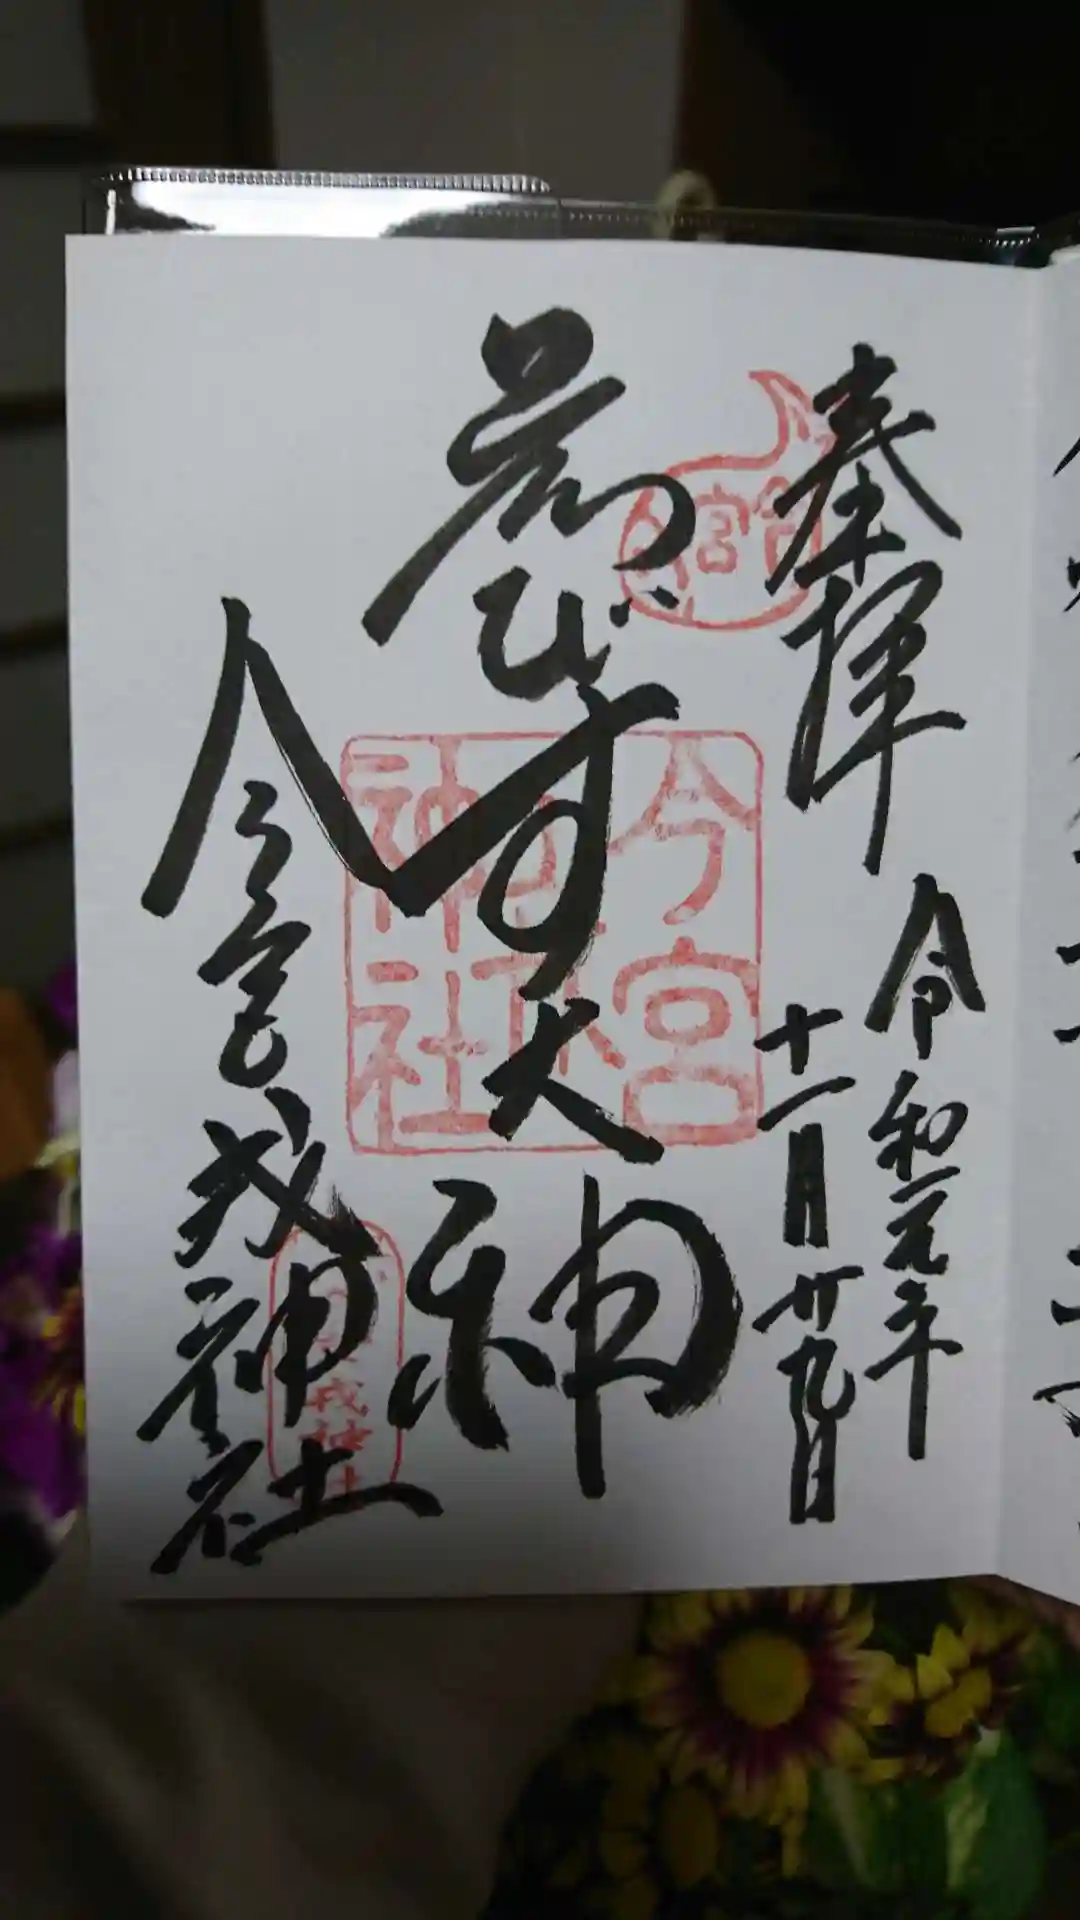 奉拝
令和元年
十一月廿九日
今宮
ゑびす大神
今宮
神社
今宮戎神社